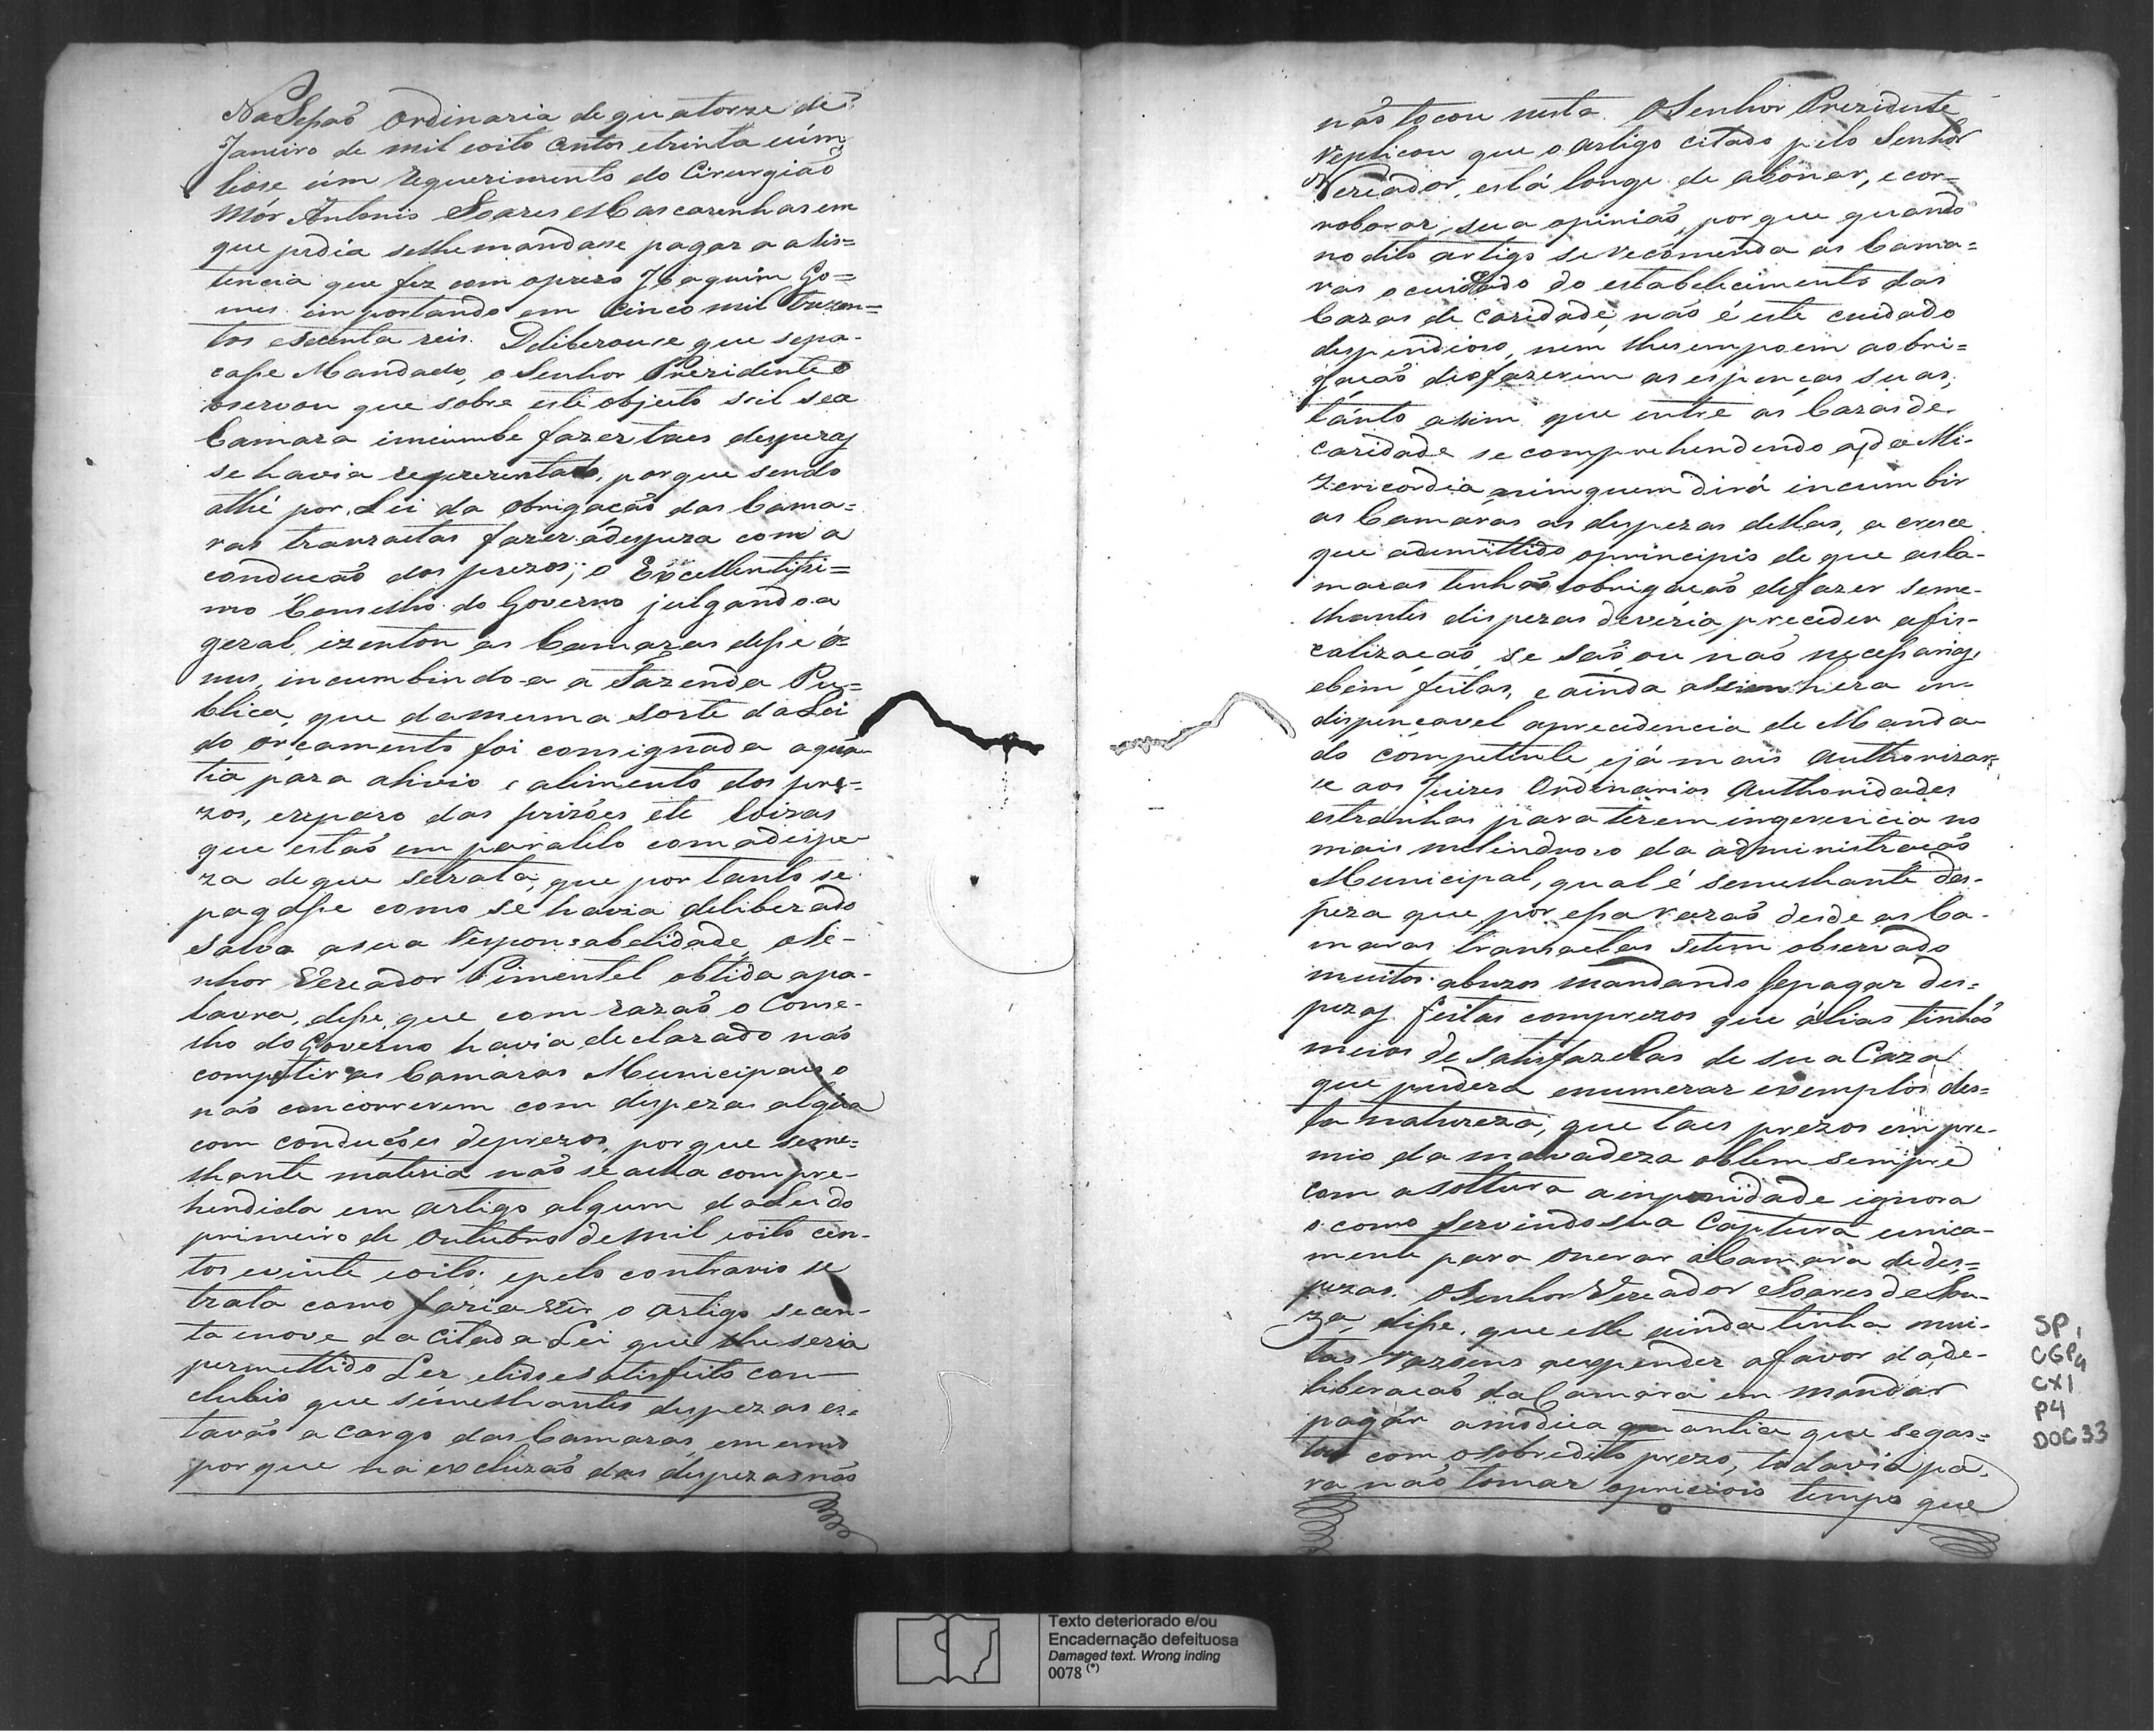 Na Sessaõ Ordinaria de quatorze de
Janeiro de mil oito centos e trinta e úm
leose úm Requerimento do Cirurgiaõ
Mór Antonio Soares Mascarenhas em
que pedia selhe mandase pagar a asis=
tencia que fez com o prezo Joaquim Go=
mes importando em Cinco mil trezen=
tos e secenta reis. Deliberouse que sepa-
casse Mandado, o Senhor Prezidente o
bservou que sobre este objecto s'eil sea
Camara imcumbe fazer taes despezas
se havia reprezentado, porque sendo
athé por Lei da obrigaçaõ das Cama=
ras tranzactas fazer ádespeza com a
conduçaõ dos prezos; o Excellentissi=
mo Conselho do Governo julgando-a
geral, izentou as Camaras desse ó=
nus, incumbindo-a a Fazenda Pu=
blica, que damesma sorte da Lei
do orçamento foi consignada a quan
tia para alivio e alimento dos pre=
zos, e reparo das prizões etc Coizas
que estaõ em paralelo com a despe
za de que setrata, que por tanto se
pagasse como se havia deliberado
salva a sua responsabelidade, o Se-
nhor Vereador Pimentel obtida apa-
lavra, disse, que com razaõ o Conse-
lho do Governo havia declarado naõ
competir as Camaras Municipais o
naõ concorrerem com despezas algũa
com conduções de prezos, porque seme-
lhante materia naõ se acha compre-
hendida em artigo algum da Lei do
primeiro de Outubro de mil oito cen-
tos e vinte e oito; e pelo contrario se
trata como faria ver o artigo secen-
ta e nove da Citada Lei que lhe seria
permettido Ler, elido e satisfeito con-
cluhio que semelhantes despezas es-
tavaõ a cargo das Camaras, em
porque na excluzaõ das despezas naõ
naõ tocou nesta. O Senhor Prezidente
replicou que o artigo citado pelo Senhor
Vereador, está longe de abonar, e cor-
roborar, sua opiniaõ, porque quando
no dito artigo se recomenda as Cama=
ras o cuidado do estabelecimento das
Cazas de Caridade, naõ é este cuidado
despendioso, nem lhes empoem aobri=
gaçaõ de fazerem as espenças suas,
tánto asim que entre as Cazas de
caridade se comprehendendo a da Mi-
zericordia ninguem dirá incumbir
as Camaras as despezas dellas, a cresce
que adimittido o principio de que as Ca-
maras tenhaõ obrigaçaõ de fazer seme-
lhantes dispezas deveria preceder a fis-
calizaçaõ, se saõ ou naõ necessarias
e bem feitas, e ainda assim hera in-
dispençavel aprecedencia de Manda-
do competente, e já mais authorizar-
se aos Juizes Ordinarios Authoridades
estranhas para terem ingerencia no
mais melindroso da administraçaõ
Municipal, qual é semelhante des-
peza que por essa razaõ desde as Ca-
maras transactas setem observado
muitos abuzos mandando se pagar des=
pezas feitas com prezos que álias tinhaõ
meios de satisfazelas de sua Caza
que pudera enumerar exemplos des=
ta natureza, que taes prezos em pre-
mio da malvadeza obtem sempre
com a soltura a impunidade ignora
o como servindo sua Captura unica-
mente para onerar a Camara de des=
pezas. O Senhor Vereador Soares de Sou-
za, disse, que elle ainda tinha mui-
tas razoens a expender a favor da de-
liberaçaõ da Camara em mandar
pagar a modica quantia que se gas=
tou com o sobredito prezo, todavia pa-
ra naõ tomar o precioso tempo que
SP,
CGP4
CX1
P4
DOC 33
Texto deteriorado e/ou
Encadernação defeituosa
Damaged text. Wrong inding
0078 (*)